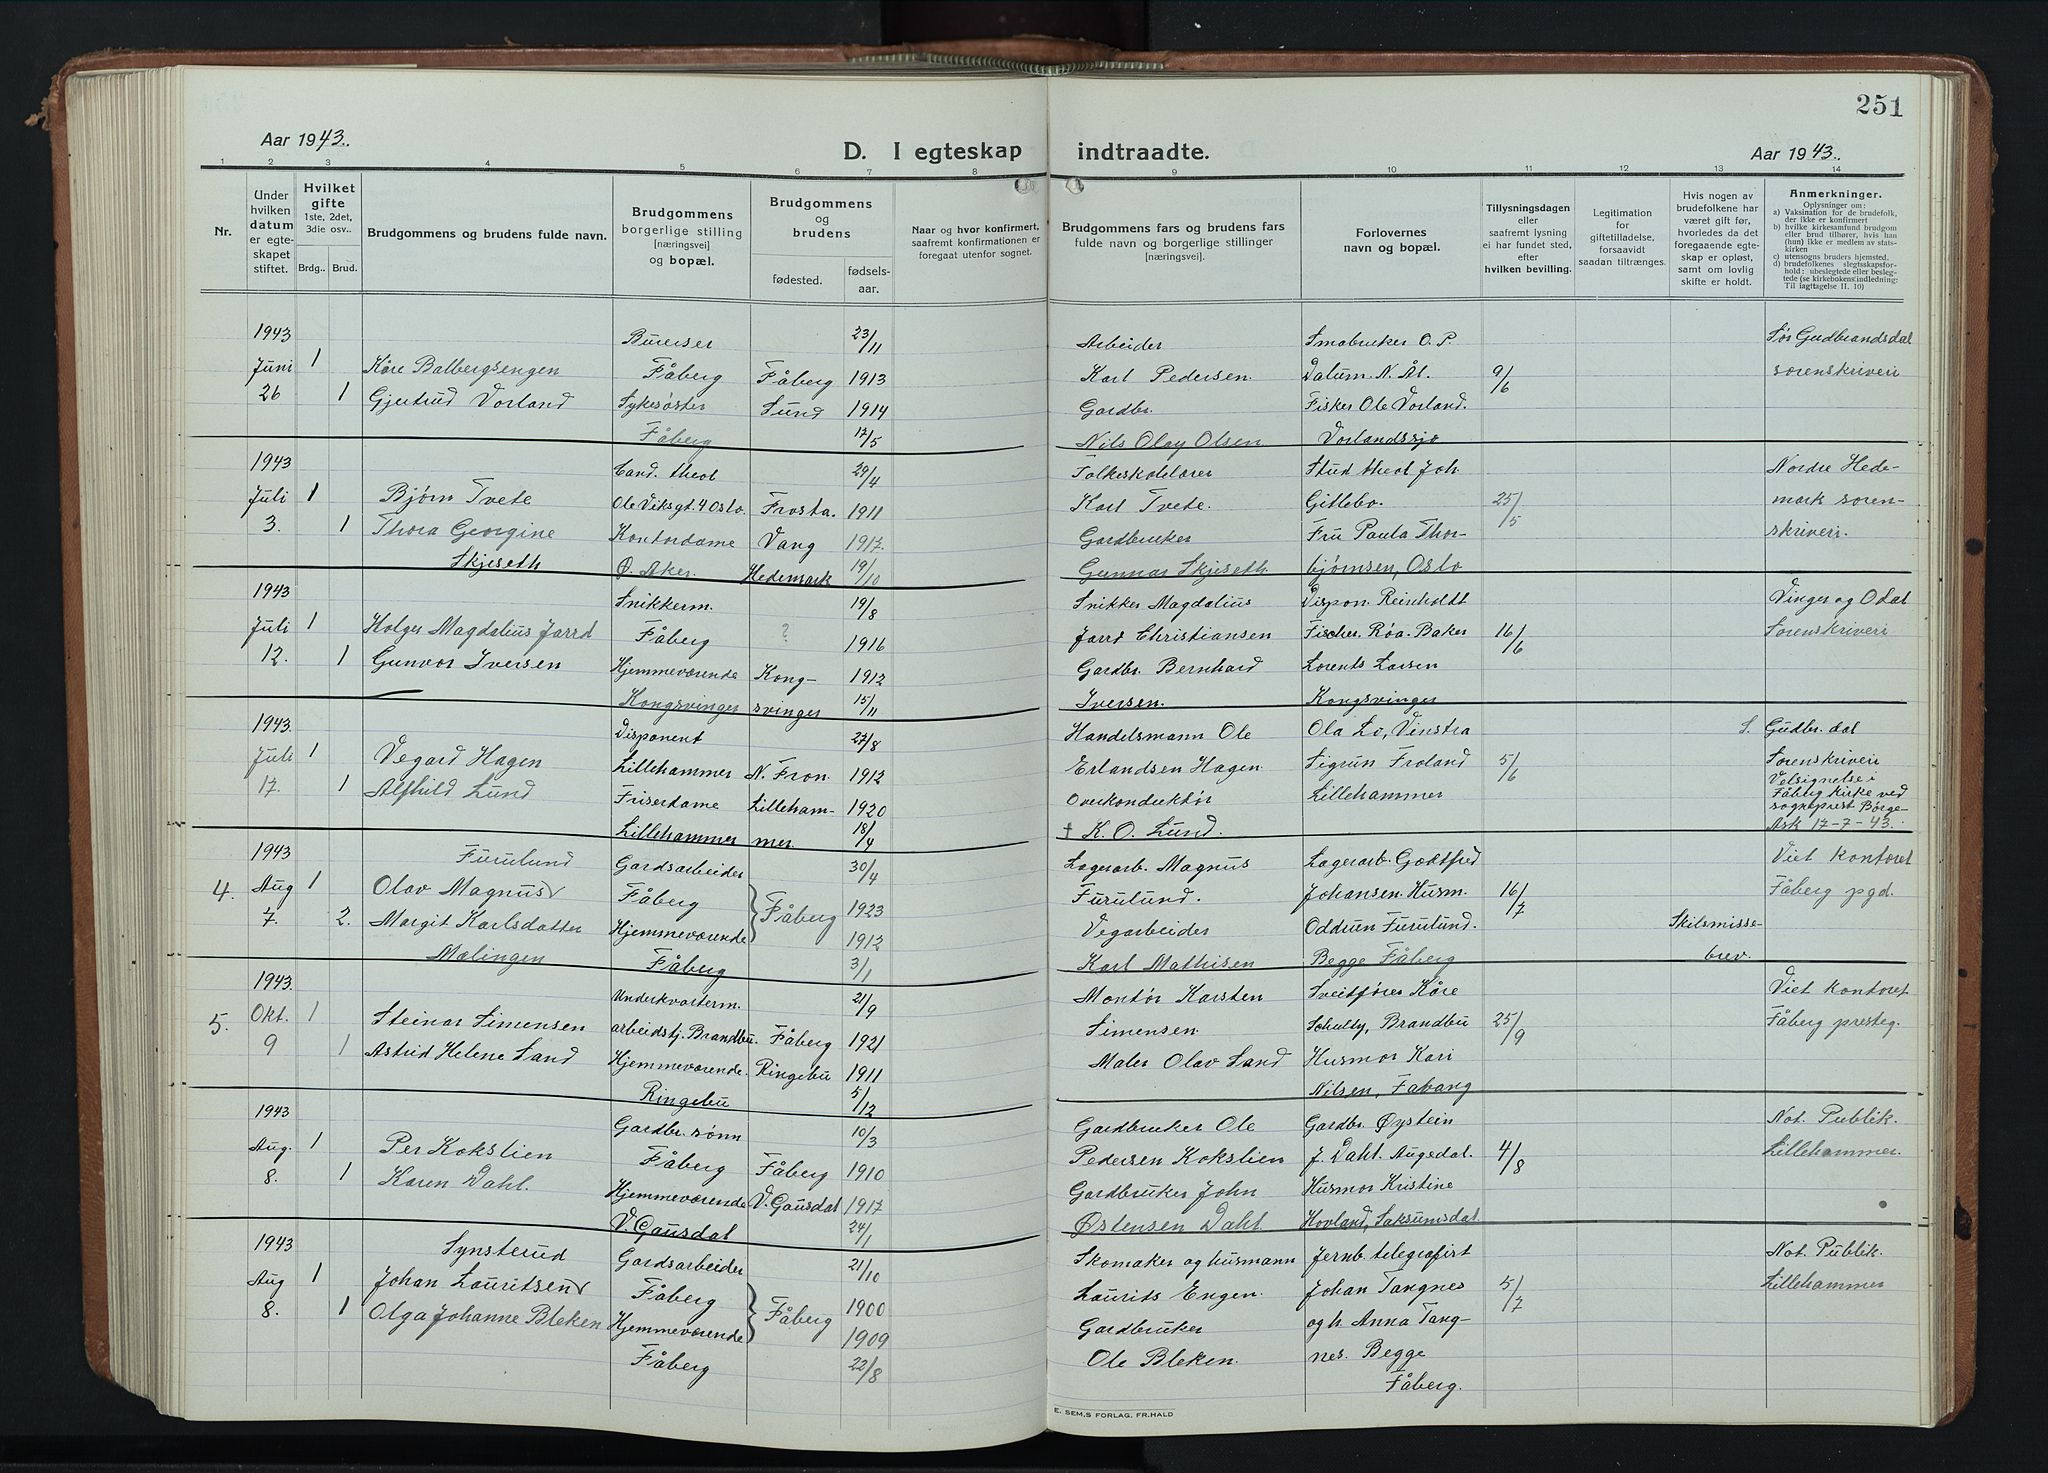 251
Aar 1943.
D. I egteskap indtraadte.
Aar 1943.
1 2 3 4 5 6 7 8 9 10 11 12 13 14
Nr.
Under hvilken datum er egte-skapet stiftet.
Hvilket gifte
1ste, 2det, 3die osv..
Brdg.. Brud.
Brudgommens og brudens fulde navn.
Brudgommens borgerlige stilling [næringsvei] og bopæl.
Brudgommens og brudens
fødested.
fødsels-aar.
Naar og hvor konfirmert, saafremt konfirmationen er foregaat utenfor sognet.
Brudgommens fars og brudens fars fulde navn og borgerlige stillinger [næringsvei].
Forlovernes navn og bopæl.
Tillysningsdagen eller saafremt lysning ei har fundet sted, efter hvilken bevilling.
Legitimation for giftetilladelse, forsaavidt saadan tiltrænges.
Hvis nogen av brudefolkene har været gift før, hvorledes da det foregaaende egte-skap er opløst, samt om lovlig skifte er holdt.
Anmerkninger.
Oplysninger om:
a) Vaksination for de brudefolk, der ikke er konfirmert
b) hvilke kirkesamfund brudgom eller brud tilhører, hvis han (hun) ikke er medlem av stats-kirken
c) utensogns bruders hjemsted.
d) brudefolkenes slegtsskapsfor-hold: ubeslegtede eller besleg-tede (se kirkebokens indledning: Til iagttagelse II. 10)
1943 Bureiser 23/11 Arbeider Småbruker O. P. Sør Gudbrandsdal
Juni 1 Kåre Balbergsengen Fåberg Fåberg 1913 Karl Pedersen. Dalum. N. Ål. 9/6 sorenskriveri
26 1 Gjertrud Vorland Sykesøster Sund 1914 Gardbr. Fisker Ole Vorland.
Fåberg 17/5 Nils Olay Olsen Vorlandssjø
1943 Cand. theol 29/4 Folkeskolelærer Stud theol Joh. Nordre Hede-
Juli 1 Bjørn Tvete Ole Viksgt. 4 Oslo. Frosta. 1911 Karl Tvete. Gitlebo. 25/5 mark soren-
3. 1 Thora Georgine Kontordame Vang 1917. Gardbruker Fru Paula Thor- skriveri.
Skjeseth Ø. Aker. Hedemark 19/10 Gunnar Skjeseth. bjørnsen, Oslo
1943 Snikkerm. 19/8 Snikker Magdalius Dispon. Reinholdt Vinger og Odal
Juli 1 Holger Magdalius Jarrd Fåberg ? 1916 Jarrd Christiansen Fischer. Røa. Baker 16/6 Sorenskriveri
12. 1 Gunvor Iversen Hjemmeværende Kong- 1912 Gardbr. Bernhard Lorents Larsen
Kongsvinger svinger 15/11 Iversen. Kongsvinger
1943. Disponent 27/8 Handelsmann Ole Ola Lo, Vinstra S. Gudbr. dal
Juli 1 Vegard Hagen Lillehammer N. Fron. 1912 Erlandsen Hagen Sigrun Froland 5/6 Sorenskriveri
17. 1 Alfhild Lund Friserdame Lilleham- 1920 Overkonduktør Lillehammer Velsignelse i Fåberg kirke ved sogneprest Børge-
Lillehammer mer 18/4 † K. O. Lund. Ask 17-7-43.
1943 Furulund Gardsarbeider 30/4 Lagerarb. Magnus Lagerarb. Godtfred Viet kontoret
4. Aug 1 Olav Magnus Fåberg Fåberg 1923 Furulund. Johansen. Husm. 16/7 Fåberg pgd.
7. 2. Margit Karlsdatter Hjemmeværende 1912 Vegarbeider Oddrun Furulund. Skilsmisse-
Mælingen Fåberg 3/1 Karl Mathisen Begge Fåberg brev.
1943. Underkvarterm. 21/9 Montør Karsten Sveitfører Kåre Viet kontoret
5. Okt. 1 Steinar Simensen arbeidstj. Brandbu. Fåberg 1921 Simensen. Schulty, Brandbu 25/9 Fåberg presteg.
9 1 Astrid Helene Sand Hjemmeværende. Ringebu 1911 Maler Olav Sand Husmor Kari
Ringebu 5/12 Nilsen, Fåvang
1943 Gardbr. sønn 10/3 Gardbruker Ole Gardbr. Øystein Not. Publik.
Aug. 1 Per Kokslien Fåberg Fåberg 1910 Pedersen Kokslien J. Dahl. Augedal. 4/8 Lillehammer.
8. 1 Karen Dahl. Hjemmeværende V. Gausdal 1917 Gardbruker John Husmor Kristine
V. Gausdal 24/1 Østensen Dahl. Hovland, Saksumsdal
1943 Synsterud Gardsarbeider 21/10 Skomaker og husmann Jernb. telegrafist Not. Publik.
Aug 1 Johan Lauritsen Fåberg Fåberg 1900 Laurits Engen. Johan Tangnes 5/7 Lillehammer
8. 1 Olga Johanne Bleken Hjemmeværende 1909 Gardbruker og h. Anna Tang-
Fåberg 22/8 Ole Bleken. nes. Begge
Fåberg.
E. SEM,S FORLAG, FR.HALD